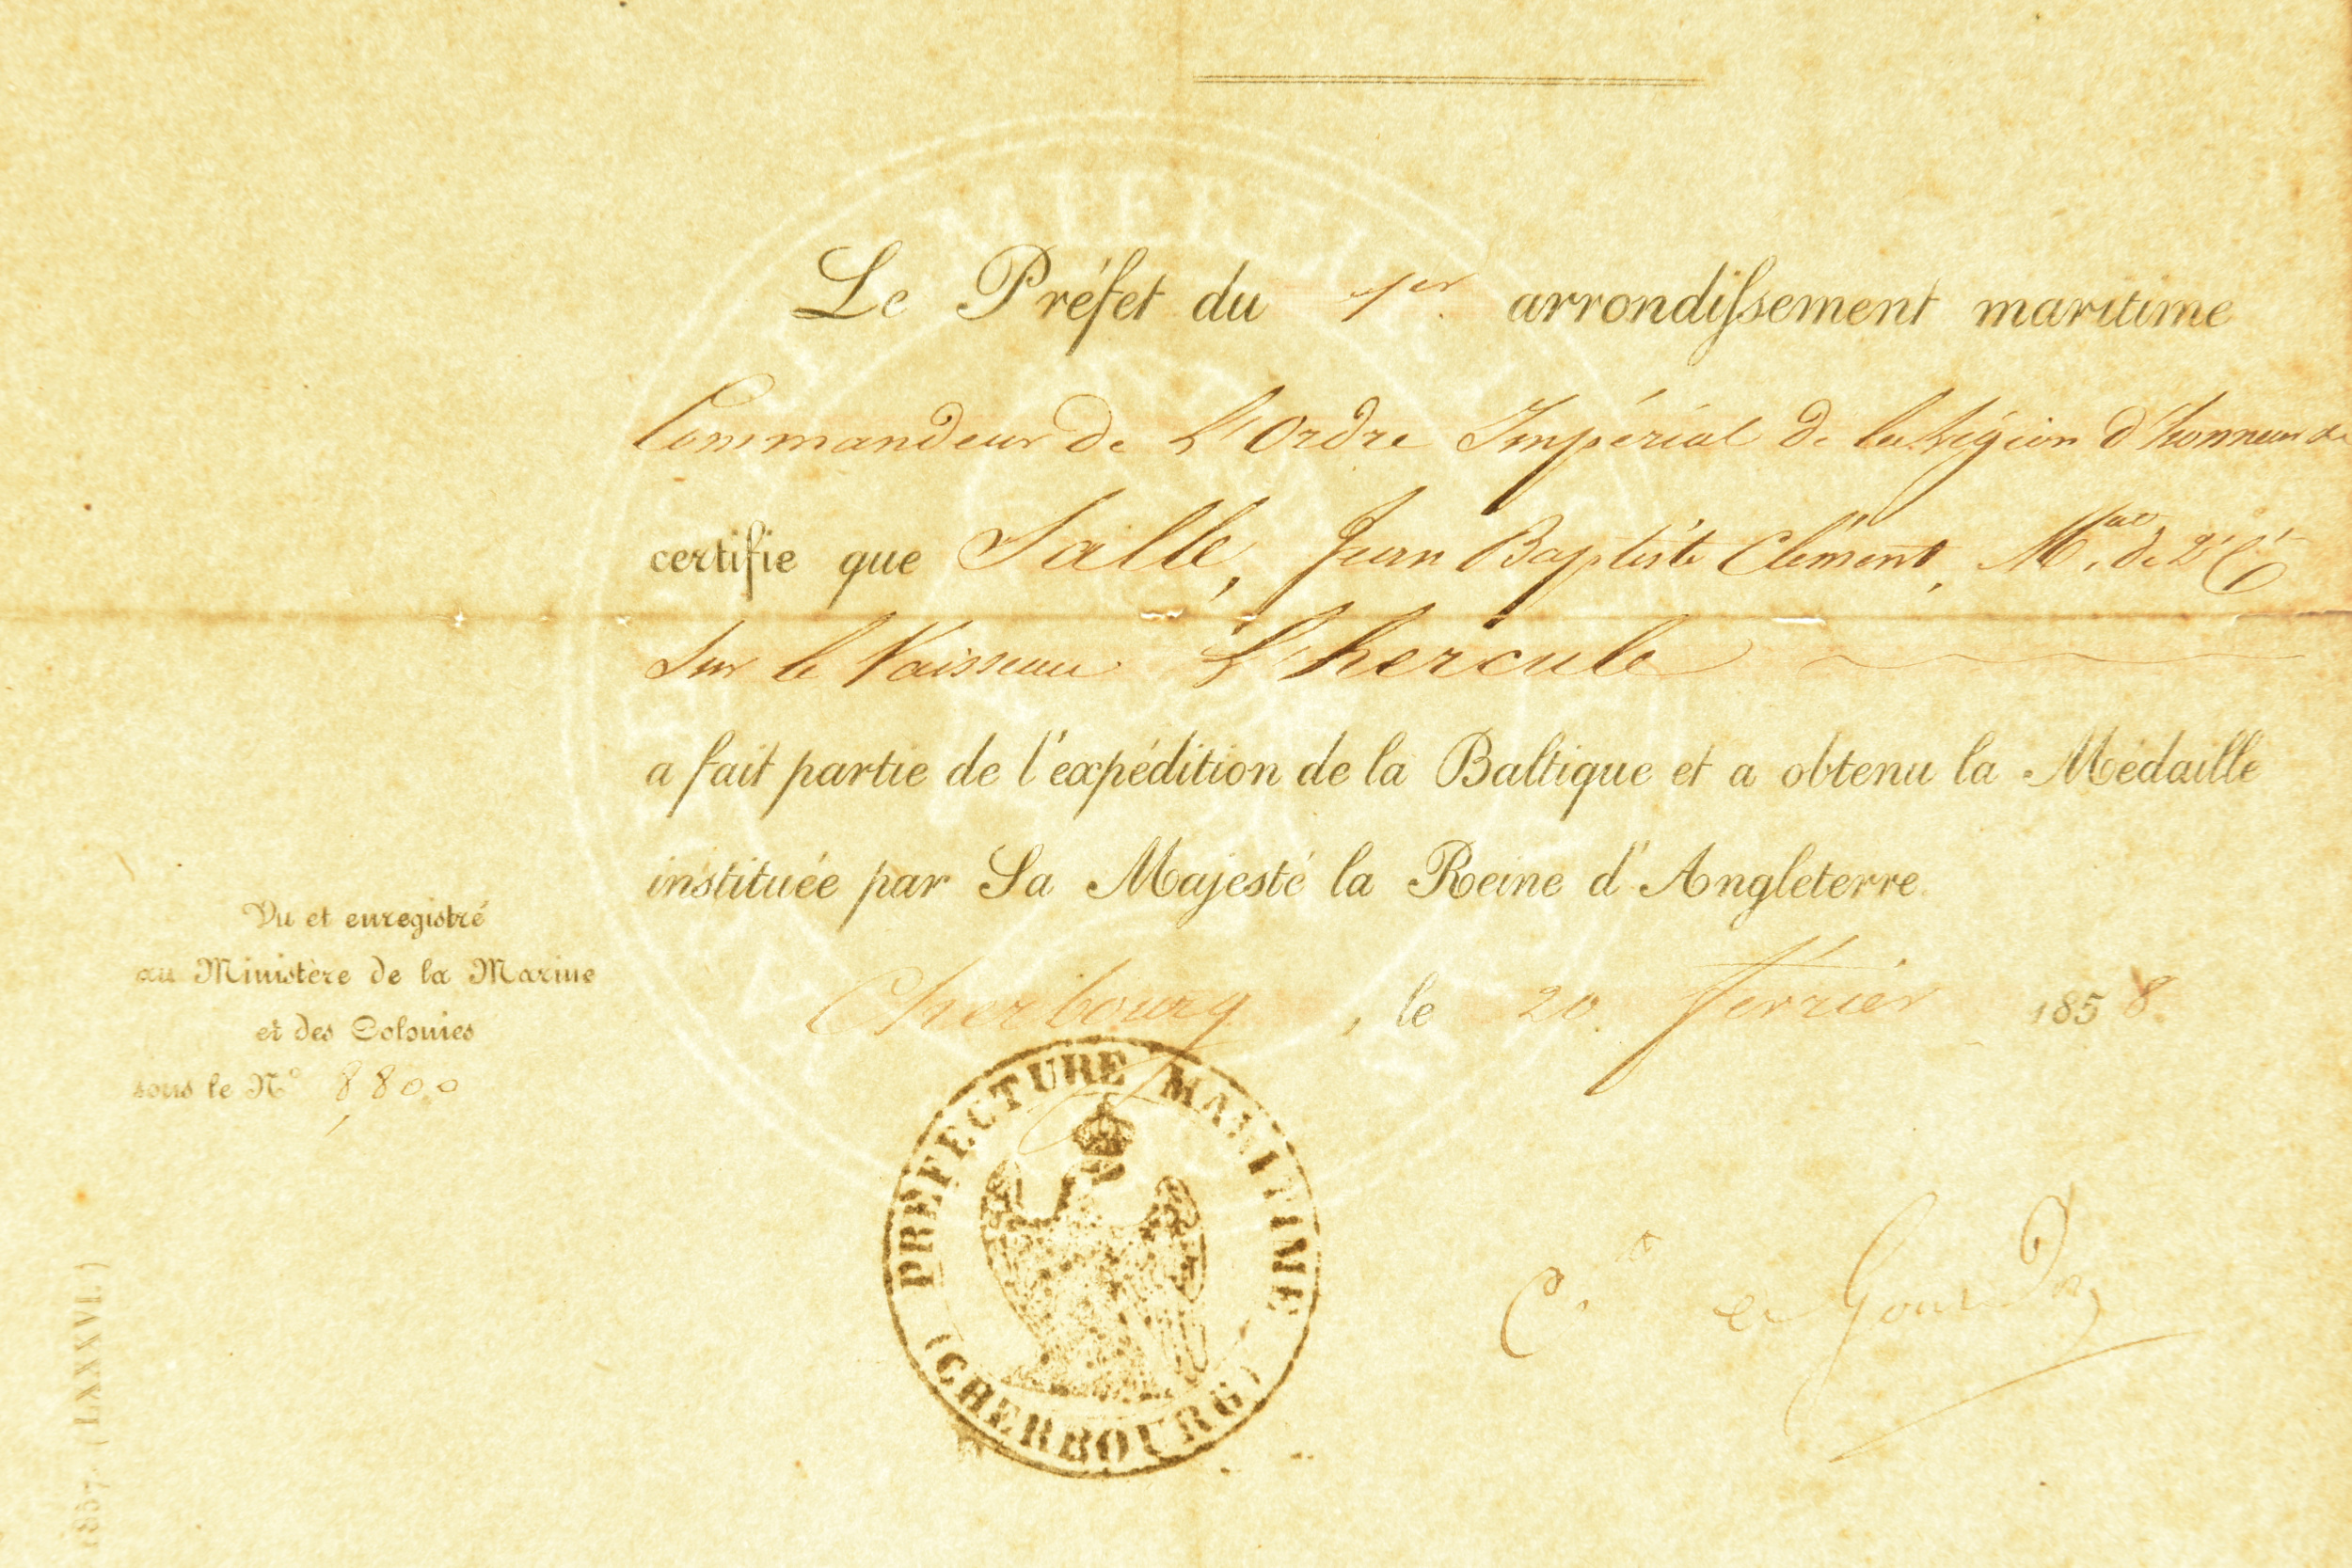 Le Préfet du 1er. arrondissement maritime
Commandeur de L'Ordre Impérial de la Légion d'honneur &
certifie que Sallé, Jean Baptiste Clément, M. de 2e Cl
Sur le Vaisseau L'hercule
a fait partie de l'expédition de la Baltique et a obtenu la Médaille
instituée par Sa Majesté la Reine d'Angleterre.
Cherbourg, le 20. février 1858.
Vu et enregistré
au Ministère de la Marine
et des Colonies
sous le No 8,800
PRÉFECTURE MARITIME
(CHERBOURG)
1857 (LXXXVI.)